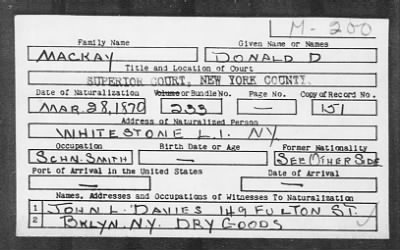 M-200
Family Name Given Name or Names
MACKAY DONALD D
Title and Location of Court
SUPERIOR COURT, NEW YORK COUNTY.
Date of Naturalization Volume or Bundle No. Page No. Copy of Record No.
MAR. 28, 1870 233 — 151
Address of Naturalized Person
WHITESTONE L.I. NY
Occupation Birth Date or Age Former Nationality
SCHN. SMITH — SEE OTHER SIDE
Port of Arrival in the United States Date of Arrival
— —
Names, Addresses and Occupations of Witnesses To Naturalization
1 JOHN L. DAVIES 149 FULTON ST.
2 BKLYN. NY. DRY GOODS